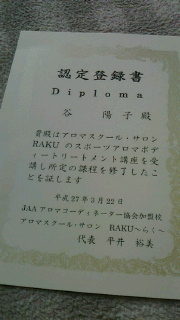 認定登録書
Diploma
谷 陽子殿
貴殿はアロマスクール・サロン
RAKU のスポーツアロマボデ
ィートリートメント講座を受
講し所定の課程を修了したこ
とを証します
平成27年3月22日
JAAアロマコーディネーター協会加盟校
アロマスクール・サロン RAKU〜らく〜
代表 平井 裕美